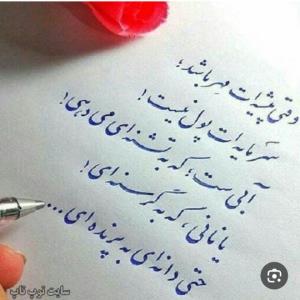 وقتی پیشه‌ات مِهر باشد؛
سَرمایه‌ات پول نیست!
آبی‌ست، که به تشنه‌ای می‌دهی!
یا نانی، که به گرسنه‌ای!
حتی دانه‌ای به پرنده‌ای...
سایت توپ تاپ